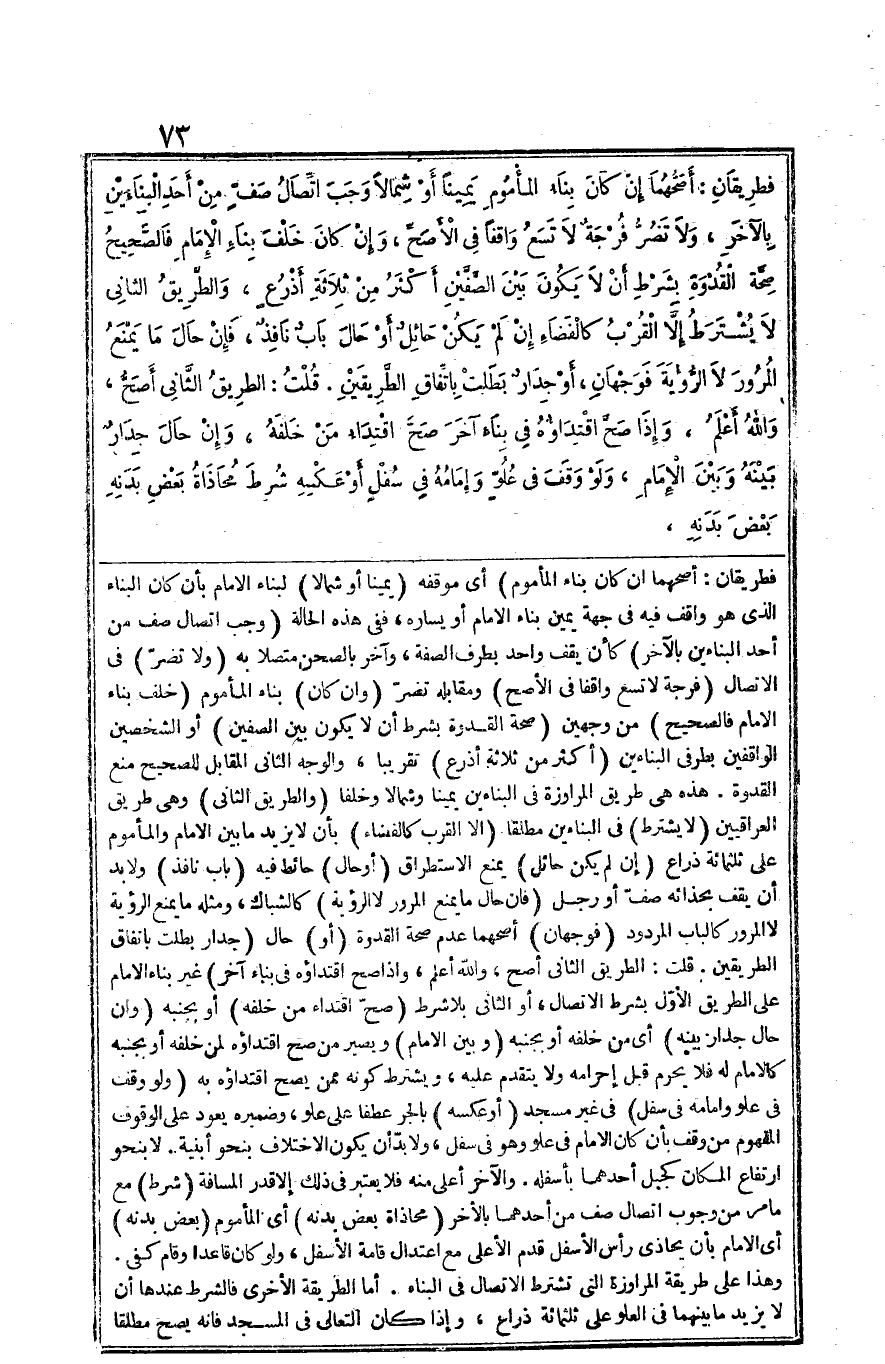 ٧٣
فَطَرِيقَانِ : أَصَحُّهُمَا إِنْ كَانَ بِنَاءُ الْمَأْمُومِ يَمِيناً أَوْ شِمَالاً وَجَبَ اتِّصَالُ صَفٍّ مِنْ أَحَدِ الْبِنَاءَيْنِ
بِالآخَرِ ، وَلاَ تَضُرُّ فُرْجَةٌ لاَ تَسَعُ وَاقِفاً فِى الْأَصَحِّ ، وَإِنْ كَانَ خَلْفَ بِنَاءِ الْإِمَامِ فَالصَّحِيحُ
صِحَّةُ الْقُدْوَةِ بِشَرْطِ أَنْ لاَ يَكُونَ بَيْنَ الصَّفَّيْنِ أَكْثَرُ مِنْ ثَلاَثَةِ أَذْرُعٍ ، وَالطَّرِيقُ الثانِى
لاَ يُشْتَرَطُ إِلَّا الْقُرْبُ كَالْفَضَاءِ إِنْ لَمْ يَكُنْ حَائِلٌ أَوْ حَالَ بَابٌ نَافِذٌ ، فَإِنْ حَالَ مَا يَمْنَعُ
الْمُرُورَ لاَ الرُّؤْيَةَ فَوَجْهَانِ ، أَوْ جِدَارٌ بَطَلَتْ بِاتِّفَاقِ الطَّرِيقَيْنِ . قُلْتُ : الطَّرِيقُ الثَّانِى أَصَحُّ ،
وَاللهُ أَعْلَمُ ، وَإِذَا صَحَّ اقْتِدَاؤُهُ فِي بِنَاءٍ آخَرَ صَحَّ اقْتِدَاءُ مَنْ خَلْفَهُ ، وَإِنْ حَالَ جِدَارٌ
بَيْنَهُ وَبَيْنَ الْإِمَامِ ، وَلَوْ وَقَفَ فِى عُلُوٍّ وَإِمَامُهُ فِي سُفْلٍ أَوْ عَكْسِهِ شُرِطَ مُحَاذَاةُ بَعْضِ بَدَنِهِ
بَعْضَ بَدَنِهِ ،
فطريقان : أصحهما ان كان بناء المأموم ) أى موقفه ( يمينا أو شمالا ) لبناء الامام بأن كان البناء
الذى هو واقف فيه فى جهة يمين بناء الامام أو يساره ، ففى هذه الحالة ( وجب اتصال صف من
أحد البناءين بالآخر ) كأن يقف واحد بطرف الصفة ، وآخر بالصحن متصلا به ( ولا تضرّ ) فى
الاتصال ( فرجة لا تسع واقفا فى الأصح ) ومقابله تضرّ ( وان كان ) بناء المأموم ( خلف بناء
الامام فالصحيح ) من وجهين ( صحة القدوة بشرط أن لا يكون بين الصفين ) أو الشخصين
الواقفين بطرفى البناءين ( أكثر من ثلاثة أذرع ) تقريبا ، والوجه الثانى المقابل للصحيح منع
القدوة . هذه هى طريق المراوزة فى البناءين يمينا وشمالا وخلفا ( والطريق الثانى ) وهى طريق
العراقيين ( لا يشترط ) فى البناءين مطلقا ( الا القرب كالفضاء ) بأن لا يزيد ما بين الامام والمأموم
على ثلثمائة ذراع ( إن لم يكن حائل ) يمنع الاستطراق ( أوحال ) حائط فيه ( باب نافذ ) ولا بد
أن يقف بحذائه صفّ أو رجل ( فان حال ما يمنع المرور لا الرؤية ) كالشباك ، ومثله ما يمنع الرؤية
لا المرور كالباب المردود ( فوجهان ) أصحهما عدم صحة القدوة ( أو ) حال ( جدار بطلت باتفاق
الطريقين . قلت : الطريق الثانى أصح ، والله أعلم ، واذا صح اقتداؤه فى بناء آخر ) غير بناء الامام
على الطريق الأوّل بشرط الاتصال ، أو الثانى بلا شرط ( صحّ اقتداء من خلفه ) أو بجنبه ( وان
حال جدار بينه ) أى من خلفه أو بجنبه ( و بين الامام ) ويصير من صح اقتداؤه لمن خلفه أو بجنبه
كالامام له فلا يحرم قبل إحرامه ولا يتقدم عليه ، ويشترط كونه ممن يصح اقتداؤه به ( ولو وقف
فى علو وامامه فى سفل ) فى غير مسجد ( أو عكسه ) بالجر عطفا على علو ، وضميره يعود على الوقوف
المفهوم من وقف بأن كان الامام فى علو وهو فى سفل ، ولا بدّ أن يكون الاختلاف بنحو أبنية . لا بنحو
ارتفاع المكان كجبل أحدهما بأسفله . والآخر أعلى منه فلا يعتبر فى ذلك إلا قدر المسافة ( شرط ) مع
مامر من وجوب اتصال صف من أحدهما بالأخر ( محاذاة بعض بدنه ) أى المأموم ( بعض بدنه )
أى الامام بأن يحاذى رأس الأسفل قدم الأعلى مع اعتدال قامة الأسفل ، ولو كان قاعدا وقام كفى .
وهذا على طريقة المراوزة التى تشترط الاتصال فى البناء . أما الطريقة الأخرى فالشرط عندها أن
لا يزيد ما بينهما فى العلو على ثلثمائة ذراع ، وإذا كان التعالى فى المسجد فانه يصح مطلقا